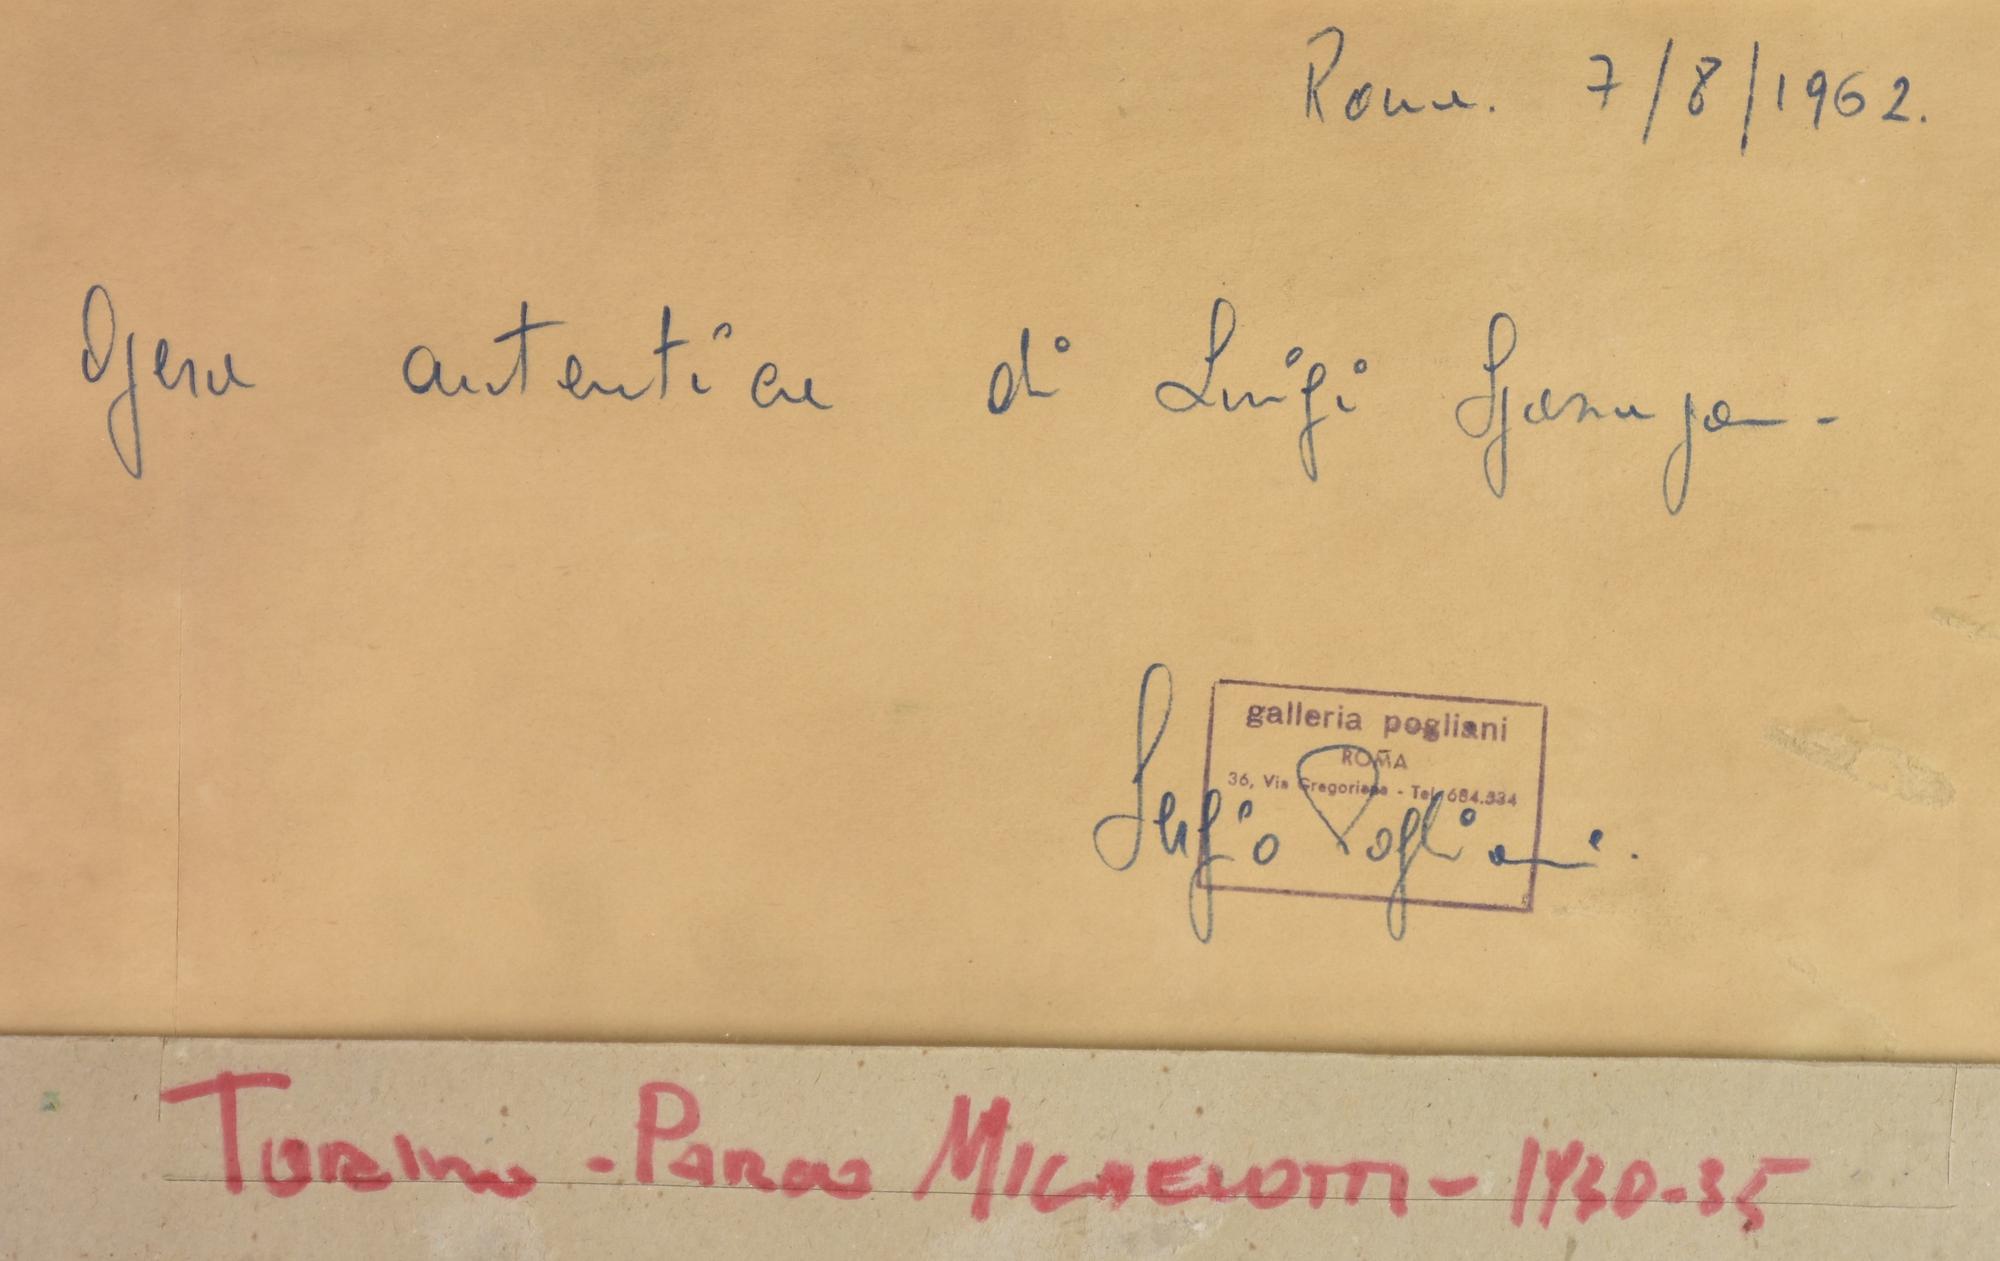 Roma. 7/8/1962.
Opera autentica di Luigi Spazzapan -
galleria pogliani
ROMA
36, Via Gregoriana - Tel. 684.334
Sergio Pogliani.
TORINO - PARCO MICHELOTTI - 1930-35